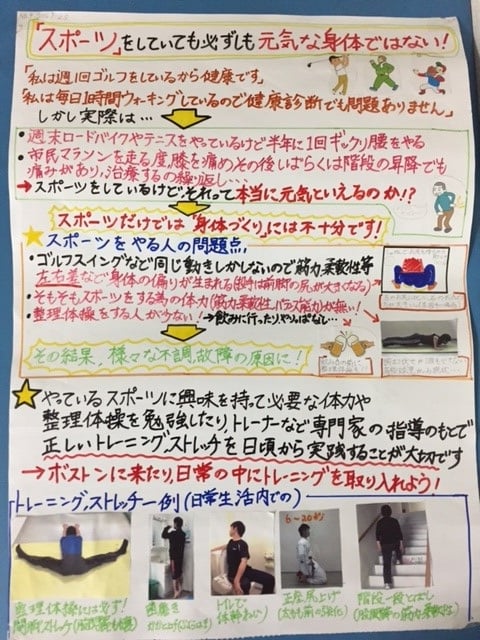 「スポーツ」をしていても必ずしも元気な身体ではない!
「私は週1回ゴルフをしているから健康です」
「私は毎日1時間ウォーキングしているので健康診断でも問題ありません」
しかし実際は…
・週末ロードバイクやテニスをやっているけど半年に1回ギックリ腰をやる
・市民マラソンを走る度、膝を痛めその後しばらくは階段の昇降でも
痛みがあり、治療する の繰り返し…
→スポーツをしているけど、それって本当に元気といえるのか!?
スポーツだけでは"身体づくり"には不十分です!
★スポーツをやる人の問題点、
・ゴルフスイングなど同じ動きしかしないので筋力、柔軟性等
左右差など身体の偏りが生まれる
・そもそもスポーツをする為の体力(筋力、柔軟性、バランス能力が無い!
・整理体操をする人が少ない!→飲みに行ったり、やりっぱなし…
その結果、様々な不調、故障の原因に!
★やっているスポーツに興味を持って必要な体力や
整理体操を勉強したり、トレーナーなど専門家の指導のもとで
正しいトレーニング、ストレッチを日頃から実践することが大切です
→ボストンに来たり、日常の中にトレーニングを取り入れよう!
トレーニング、ストレッチ一例(日常生活内での)
6~20秒
整理体操には必ず!
開脚ストレッチ
歯磨き
トイレで
体幹ねじり
正座、尻上げ
階段一段とばし